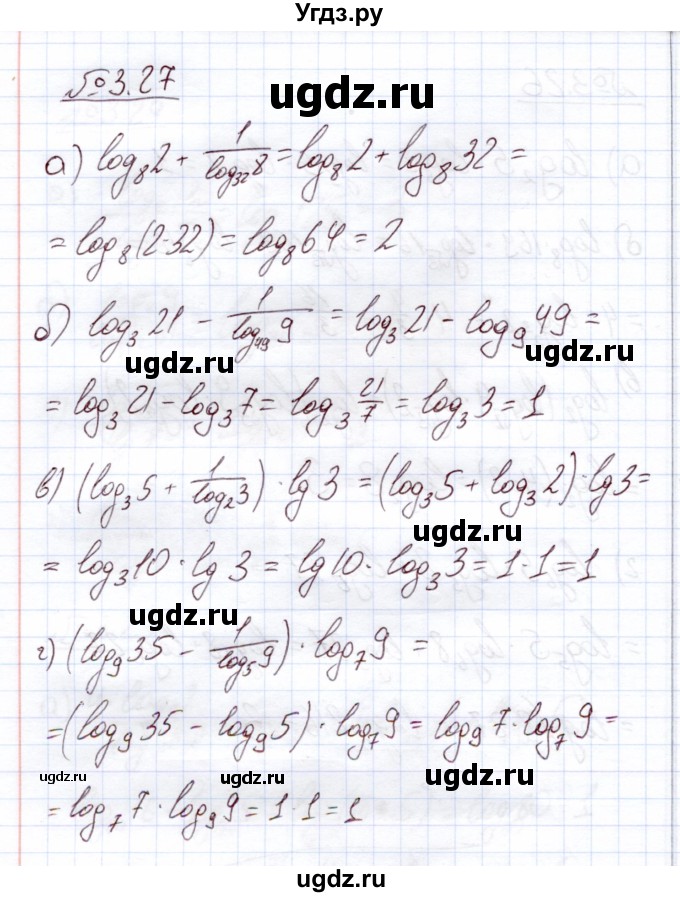 Угдз.ру
№3.27
ugdz.ru
а) log₈2 + 1/log₃₂8 = log₈2 + log₈32 =
= log₈(2·32) = log₈64 = 2
б) log₃21 - 1/log₄₉9 = log₃21 - log₉49 =
ugdz.ru ugdz.ru
= log₃21 - log₃7 = log₃ 21/7 = log₃3 = 1
в) (log₃5 + 1/log₂3) · lg3 = (log₃5 + log₃2) · lg3 =
ugdz.ru
= log₃10 · lg3 = lg10 · log₃3 = 1·1 = 1
ugdz.ru
г) (log₉35 - 1/log₅9) · log₇9 =
= (log₉35 - log₉5) · log₇9 = log₉7 · log₇9 =
ugdz.ru ugdz.ru ugdz.ru
= log₇7 · log₉9 = 1·1 = 1
ugdz.ru